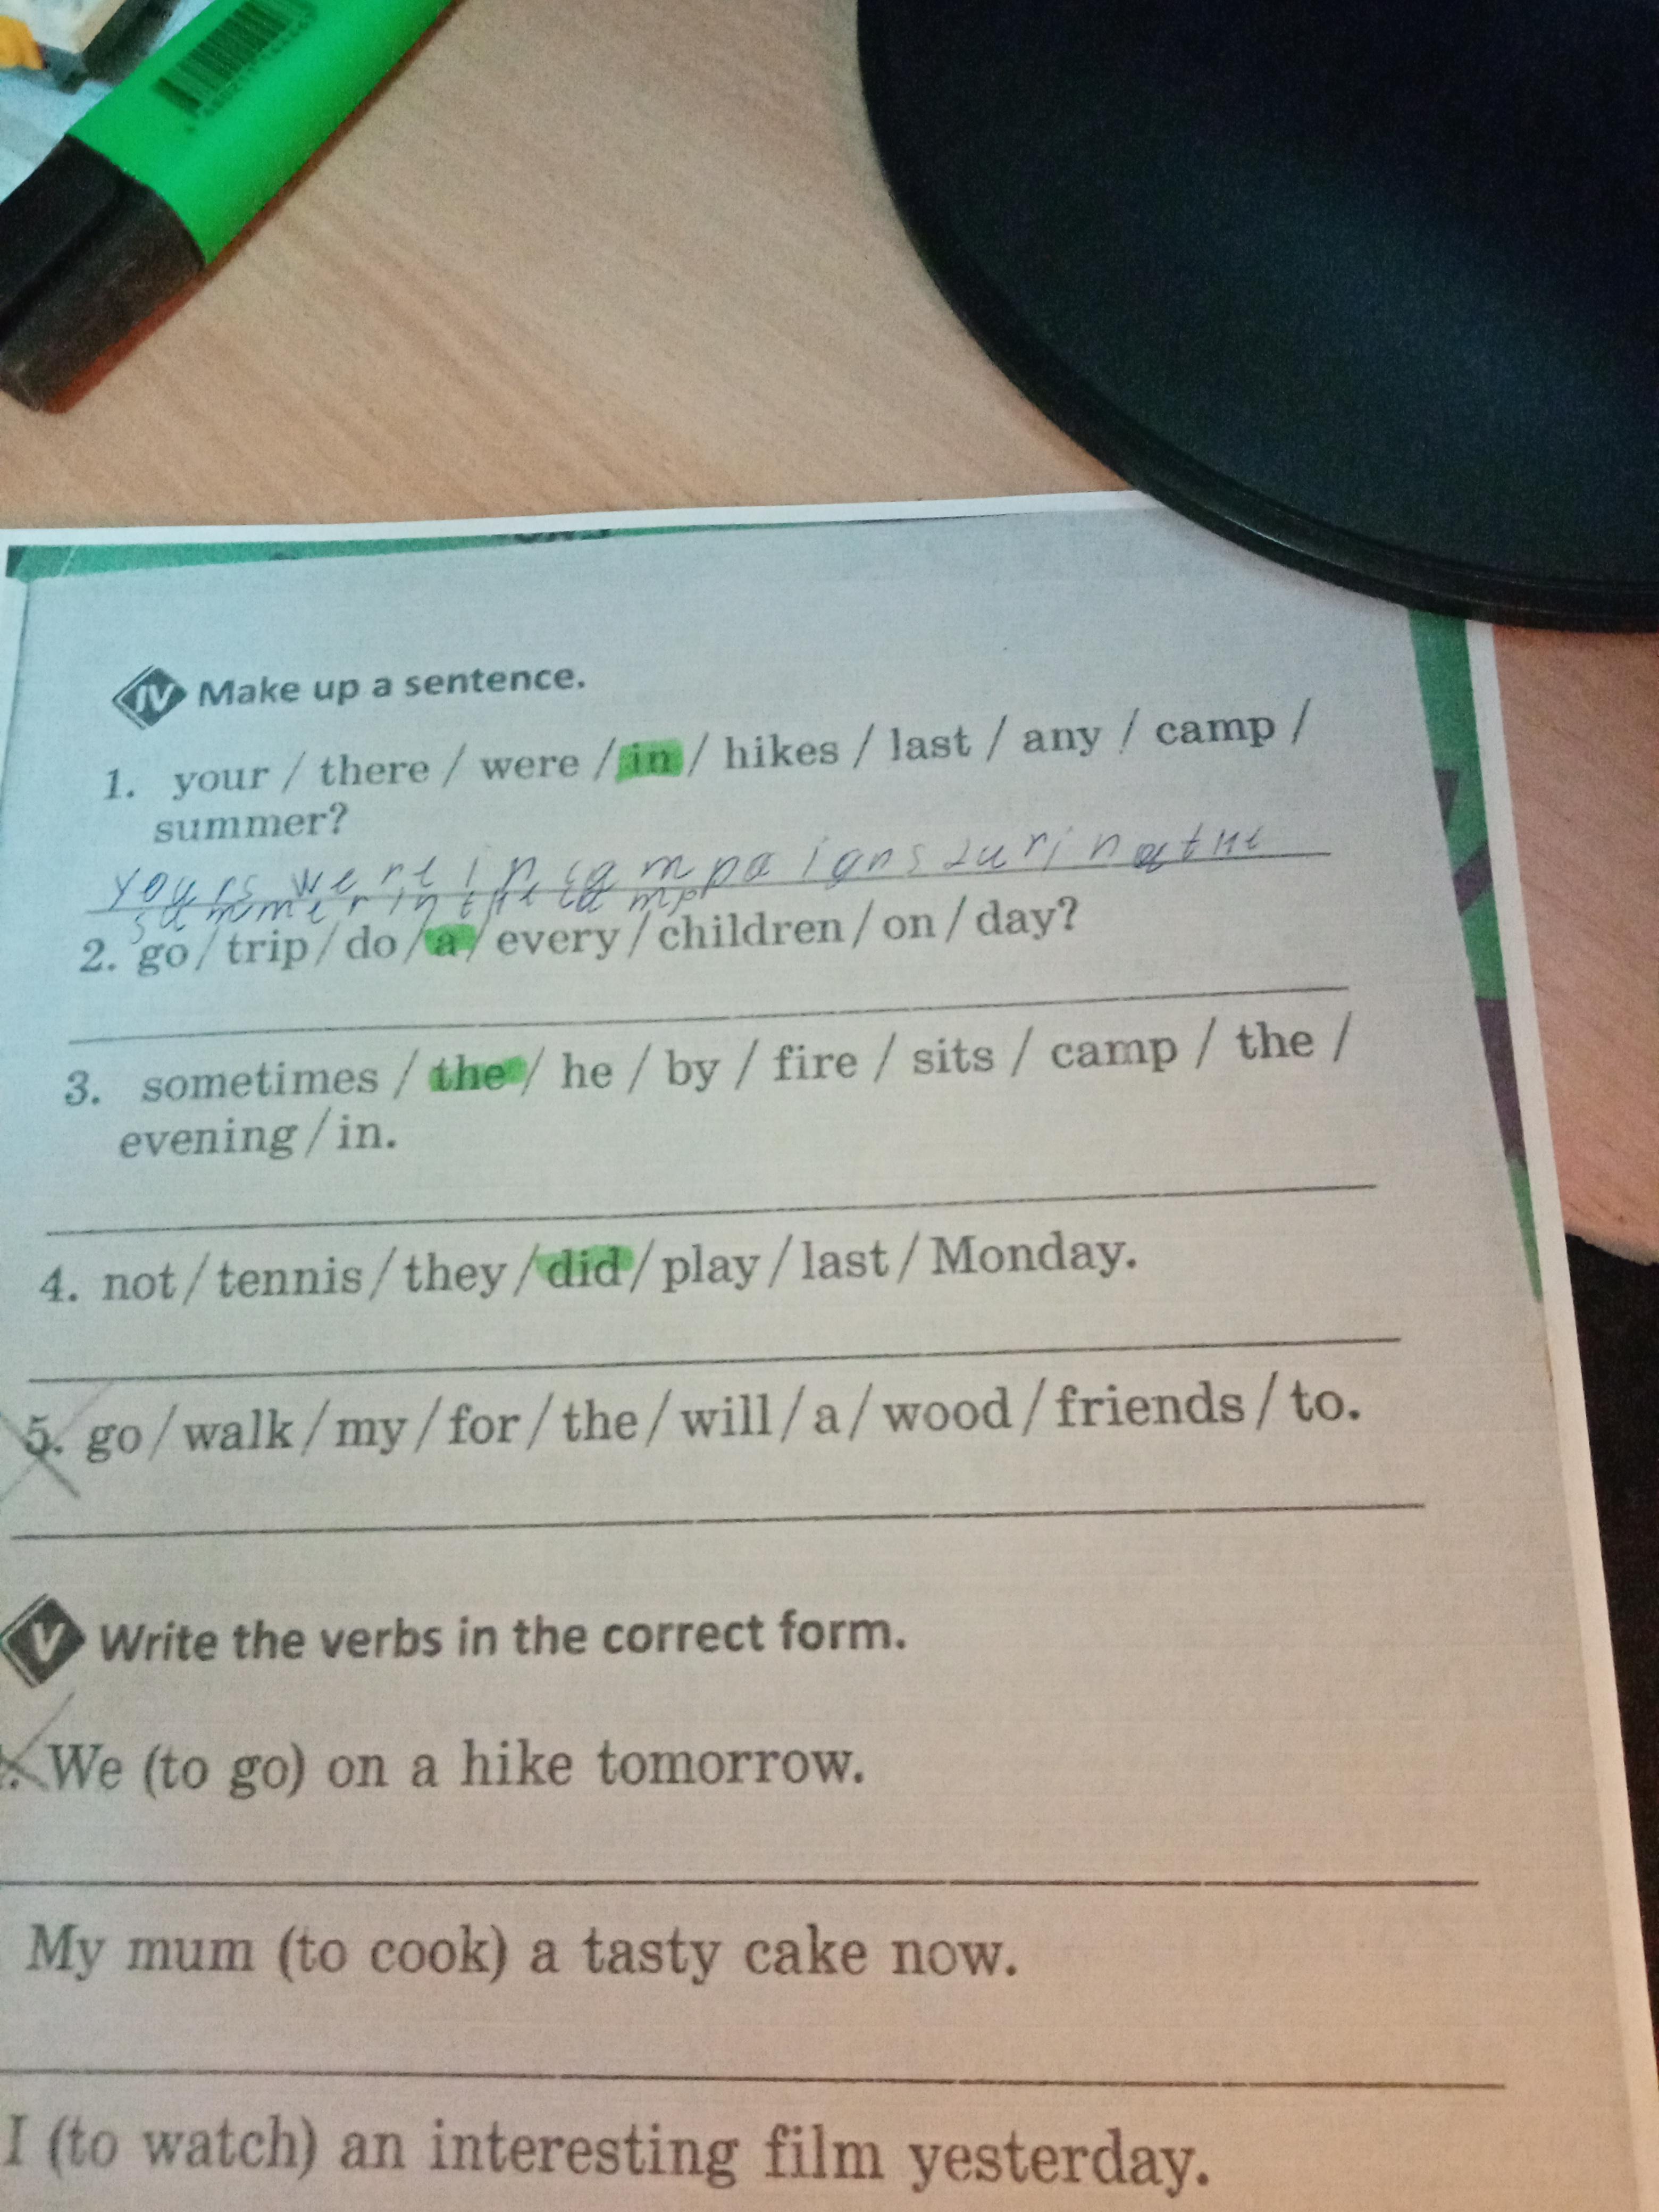 IV Make up a sentence.
1. your / there / were / in / hikes / last / any / camp /
summer?
yours were in campaigns during the
summer in the camp
2. go / trip / do / a / every / children / on / day?
3. sometimes / the / he / by / fire / sits / camp / the /
evening / in.
4. not / tennis / they / did / play / last / Monday.
5. go / walk / my / for / the / will / a / wood / friends / to.
V Write the verbs in the correct form.
We (to go) on a hike tomorrow.
My mum (to cook) a tasty cake now.
I (to watch) an interesting film yesterday.